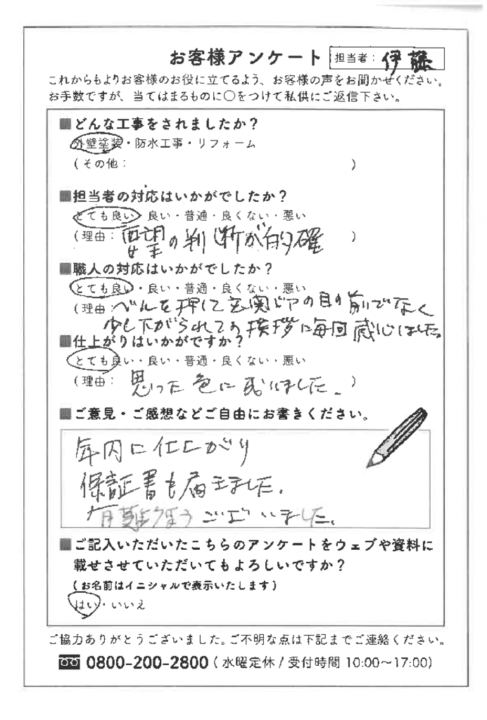 お客様アンケート 担当者: 伊藤
これからもよりお客様のお役に立てるよう、お客様の声をお聞かせください。
お手数ですが、当てはまるものに○をつけて私供にご返信下さい。
■どんな工事をされましたか?
外壁塗装・防水工事・リフォーム
(その他: )
■担当者の対応はいかがでしたか?
とても良い・良い・普通・良くない・悪い
(理由: 要望の判断が的確 )
■職人の対応はいかがでしたか?
とても良い・良い・普通・良くない・悪い
(理由: ベルを押して玄関ドアの目の前でなく
少し下がられての挨拶に毎回感心しました。
■仕上がりはいかがですか?
とても良い・良い・普通・良くない・悪い
(理由: 思った色になりました。)
■ご意見・ご感想などご自由にお書きください。
年内に仕上がり
保証書も届きました。
有難うございました。
■ご記入いただいたこちらのアンケートをウェブや資料に
載せさせていただいてもよろしいですか?
(お名前はイニシャルで表示いたします)
はい・いいえ
ご協力ありがとうございました。ご不明な点は下記までご連絡ください。
0800-200-2800 (水曜定休/受付時間 10:00~17:00)